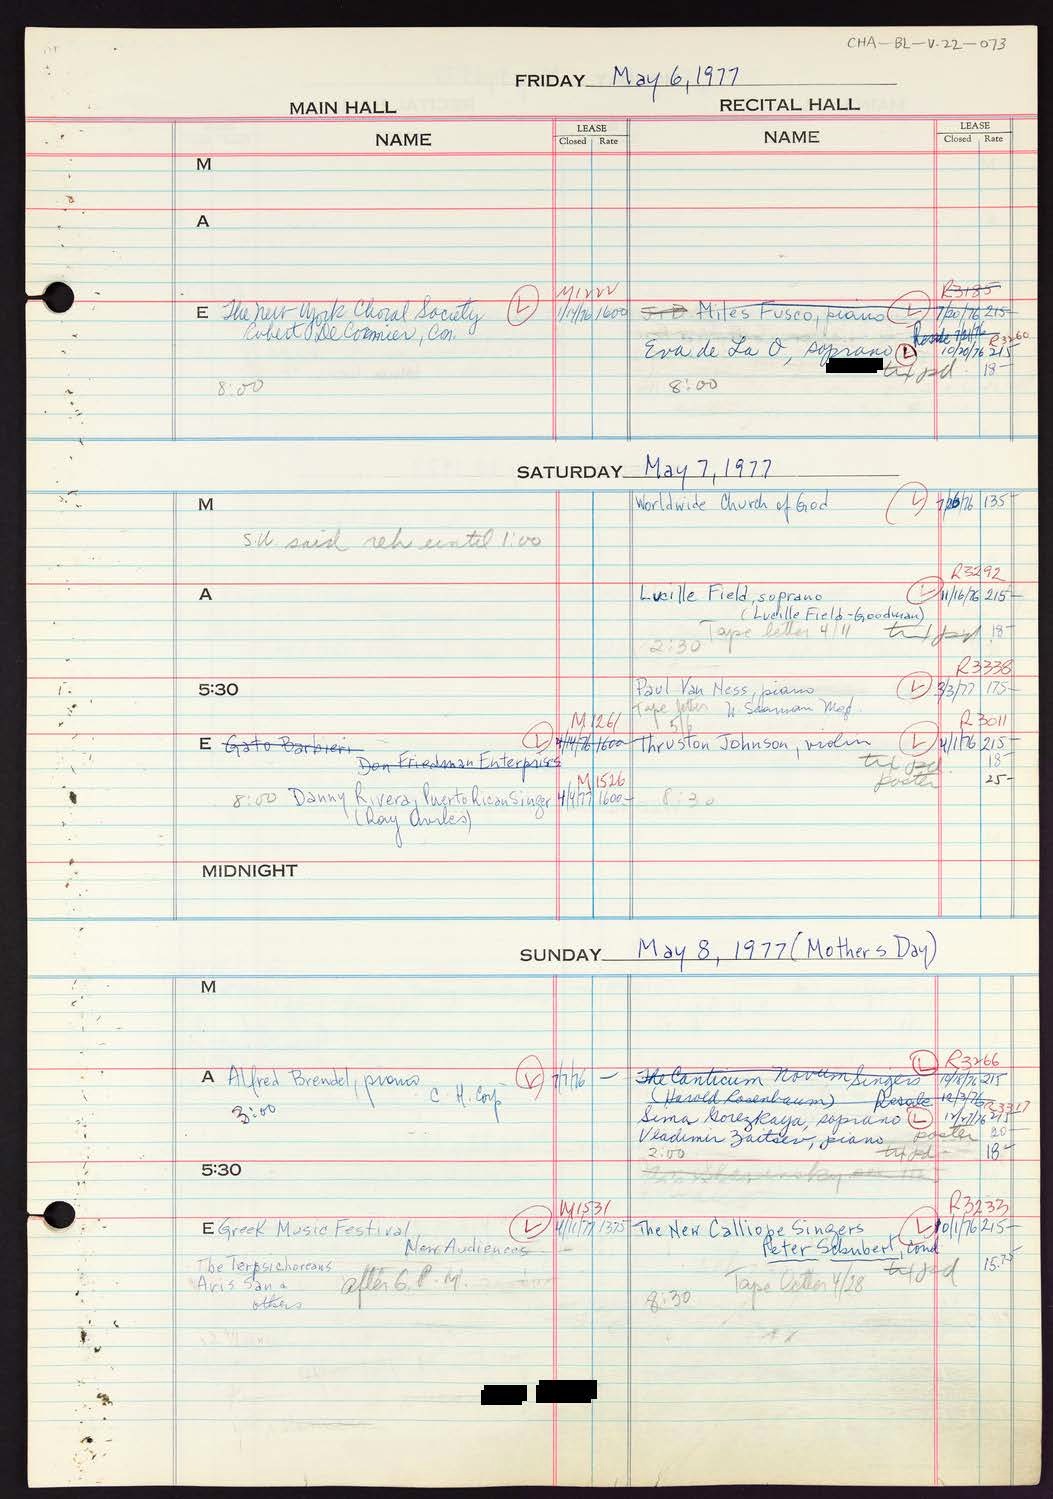 CHA-BL-V.22-073
FRIDAY May 6, 1977
MAIN HALL
RECITAL HALL
NAME
LEASE
Closed Rate
NAME
LEASE
Closed Rate
M
A
M1222
E The New York Choral Society L 1/14/76 1600
De Cormier, Con.
8:00
R3185
Miles Fusco, piano L 7/20/76 215-
Resale 7/21/76 R3260
Eva de La O, soprano L 10/20/76 215
txt pd. 18-
8:00
SATURDAY May 7, 1977
M
S.W. said reh until 1:00
Worldwide Church of God L 7/26/76 135-
A
R3292
Lucille Field, soprano L 11/16/76 215-
(Lucille Field-Goodman)
Tape letter 4/11 txt pd 18-
2:30
5:30
R3338
Paul Van Ness, piano L 3/3/77 175-
Tape letter W. Seaman Mgt.
5/6
M1261
E Gato Barbieri L 4/14/76 1600
Don Friedman Enterprises
M1526
8:00 Danny Rivera, Puerto Rican Singer 4/4/77 1600-
(Ray Aviles)
R3011
Thruston Johnson, violin L 4/1/76 215-
txt pd 18-
poster 25-
8:30
MIDNIGHT
SUNDAY May 8, 1977 (Mothers Day)
M
A Alfred Brendel, piano L 7/7/76 -
C. H. Corp
3:00
L R3266
The Canticum Novum Singers 10/8/76 215
(Harold Rosenbaum) Resale 12/3/76
R3317
Sima Gorezkaya, soprano L 12/27/76 215
Vladimir Zaitsev, piano poster 20-
2:00 txt pd- 18-
5:30
M1531
E Greek Music Festival L 4/11/77 1375
New Audiences
The Terpsichoreans
Aris San &
others
after 6. P. M.
R3233
The New Calliope Singers L 10/1/76 215-
Peter Schubert, Cond
txt pd 15.75
Tape letter 4/28
8:30